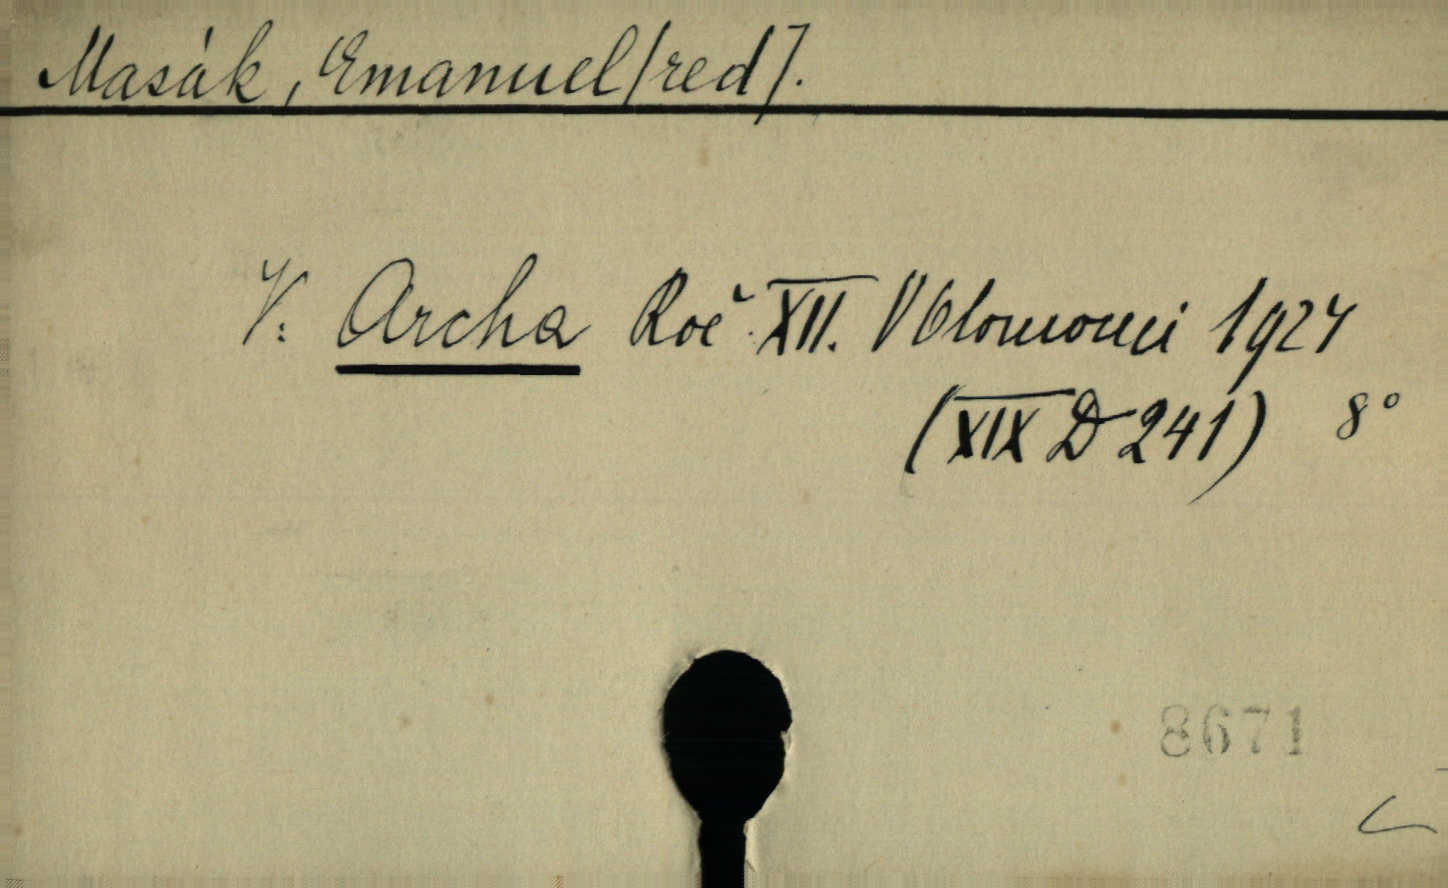 Masák, Emanuel [red].
V: Archa Roč. XII. V Olomouci 1924
(XIX D 241) 8°
8671